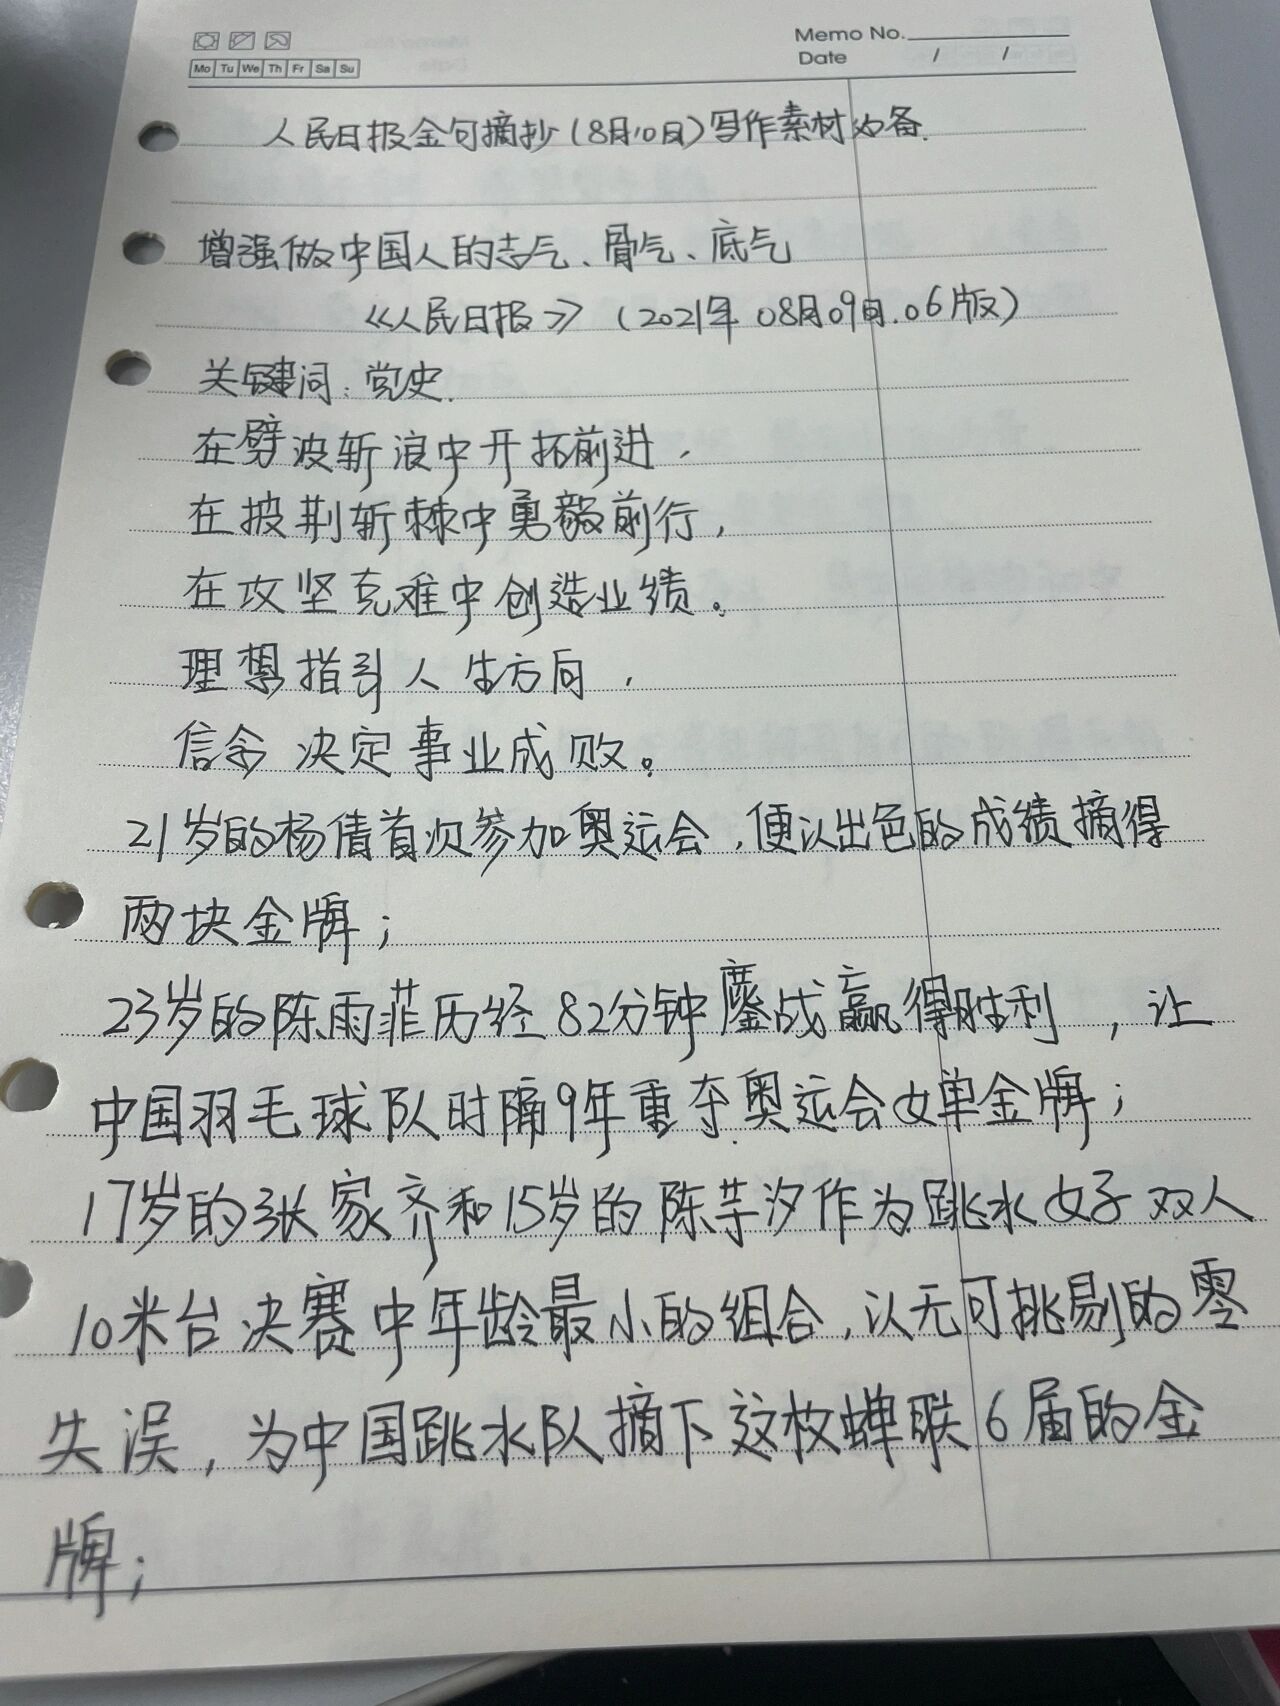 Memo No.
Mo Tu We Th Fr Sa Su
Date / /
人民日报金句摘抄(8月10日)写作素材必备.
增强做中国人的志气、骨气、底气
《人民日报》(2021年08月09日.06版)
关键词:党史.
在劈波斩浪中开拓前进,
在披荆斩棘中勇毅前行,
在攻坚克难中创造业绩。
理想指引人生方向,
信念决定事业成败。
21岁的杨倩首次参加奥运会,便以出色的成绩摘得
两块金牌;
23岁的陈雨菲历经82分钟鏖战赢得胜利,让
中国羽毛球队时隔9年重夺奥运会女单金牌;
17岁的张家齐和15岁的陈芋汐作为跳水女子双人
10米台决赛中年龄最小的组合,以无可挑剔的零
失误,为中国跳水队摘下这枚蝉联6届的金
牌;